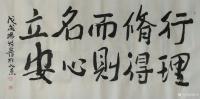 行脩而名立
理得則心安
戊戌